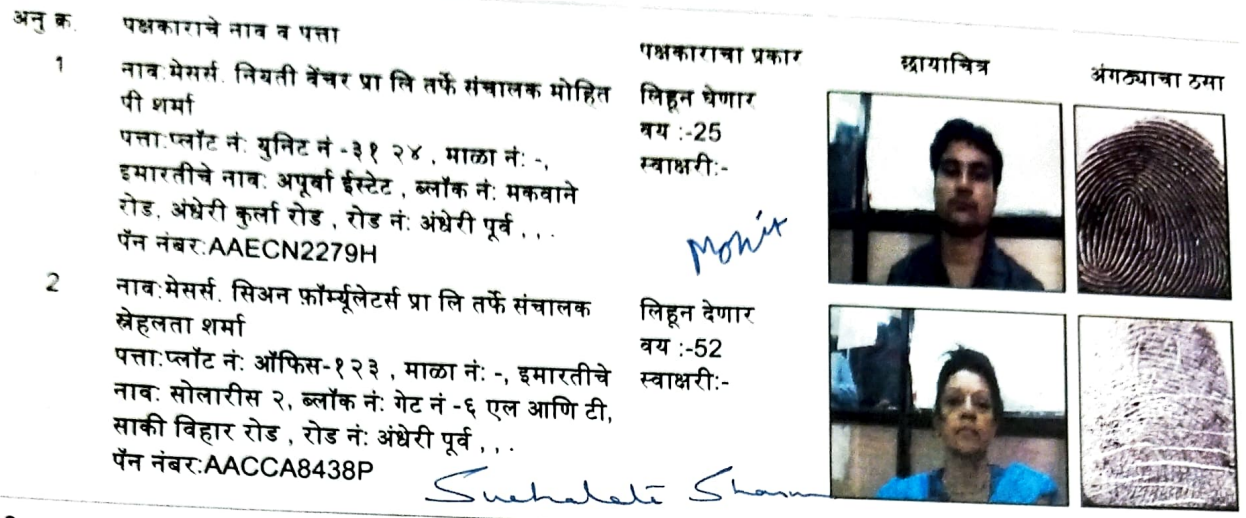 अनु क्र. पक्षकाराचे नाव व पत्ता पक्षकाराचा प्रकार छायाचित्र अंगठ्याचा ठसा
1 नाव:मेसर्स. नियती वेंचर प्रा लि तर्फे संचालक मोहित लिहून घेणार
पी शर्मा वय :-25
पत्ता:प्लॉट नं: युनिट नं -३१ २४ , माळा नं: -, स्वाक्षरी:-
इमारतीचे नाव: अपूर्वा ईस्टेट , ब्लॉक नं: मकवाने
रोड, अंधेरी कुर्ला रोड , रोड नं: अंधेरी पूर्व , , .
पॅन नंबर:AAECN2279H
Mohit
2 नाव:मेसर्स. सिअन फ़ॉर्म्यूलेटर्स प्रा लि तर्फे संचालक लिहून देणार
स्नेहलता शर्मा वय :-52
पत्ता:प्लॉट नं: ऑफिस-१२३ , माळा नं: -, इमारतीचे स्वाक्षरी:-
नाव: सोलारीस २, ब्लॉक नं: गेट नं -६ एल आणि टी,
साकी विहार रोड , रोड नं: अंधेरी पूर्व , , .
पॅन नंबर:AACCA8438P
Snehalata Sharma